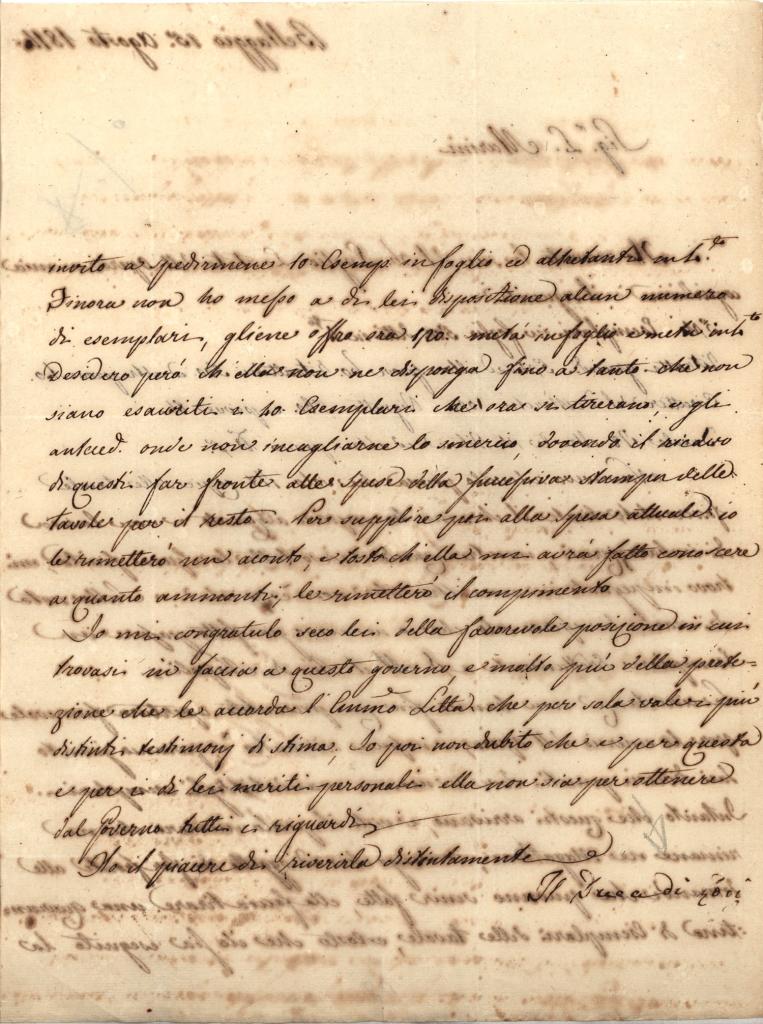 invito a spedirmene 10 Esemp. in foglio ed altretanti in 4.to
Finora non ho messo a di lei disposizione alcun numero
di esemplari, gliene offro ora metá in foglio e metá in 4.to
Desidero peró ch'ella non ne disponga fino a tanto che non
siano esauriti i Esemplari che ora si tirerano, e gli
anteced. onde non incagliarne lo smercio, dovendo il ricavo
di questi far fronte alle spese della successiva stampa delle
tavole per il resto. Per supplire poi alla spesa attuale io
le rimetteró un aconto, e tosto ch'ella mi avrá fatto conoscere
a quanto ammonti, le rimetteró il compimento.
Io mi congratulo seco lei della favorevole posizione in cui
trovasi in faccia a questo governo, e molto piú della prote=
zione che le accorda l'Emin.mo Litta che per sola vale i piú
distinti testimonj di stima, Io poi non dubito che e per questa
e per i di lei meriti personali ella non sia per ottenere
dal Governo tutti i riguardi
Ho il piacere di riverirla distintamente
Il Duca di